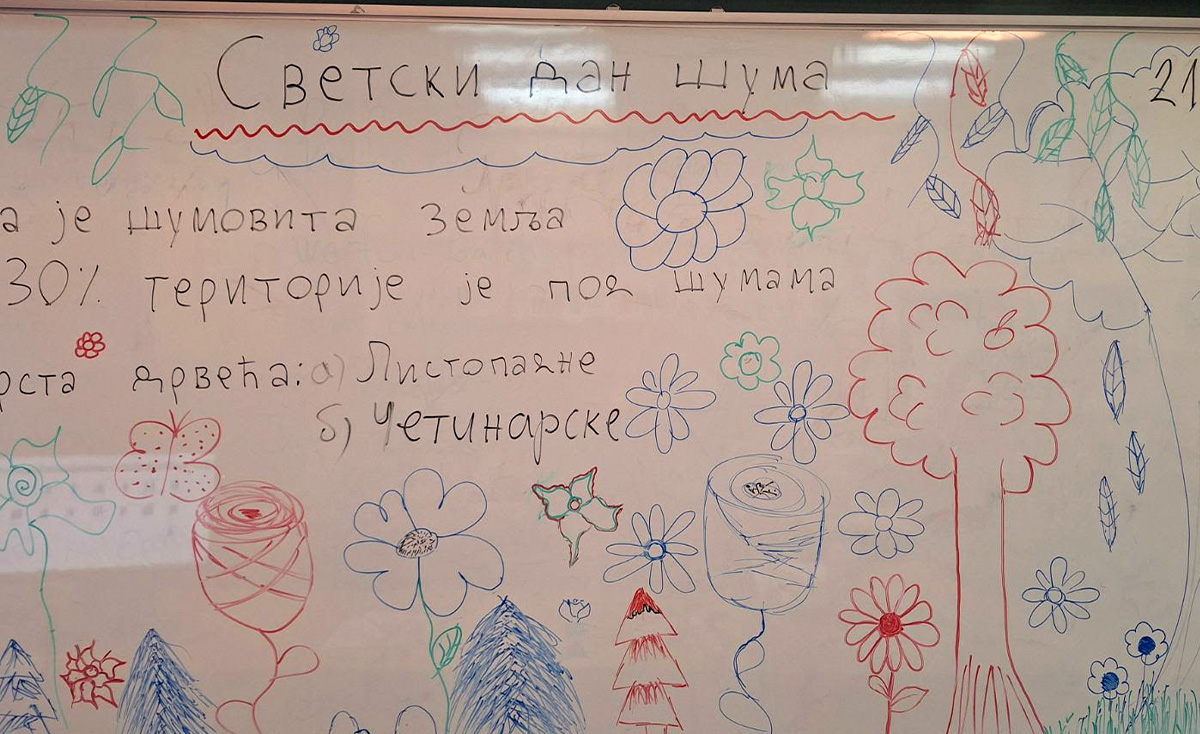 Светски дан шума
21
а је шумовита земља
30% територије је под шумама
рста дрвећа: а) Листопадне
б) Четинарске